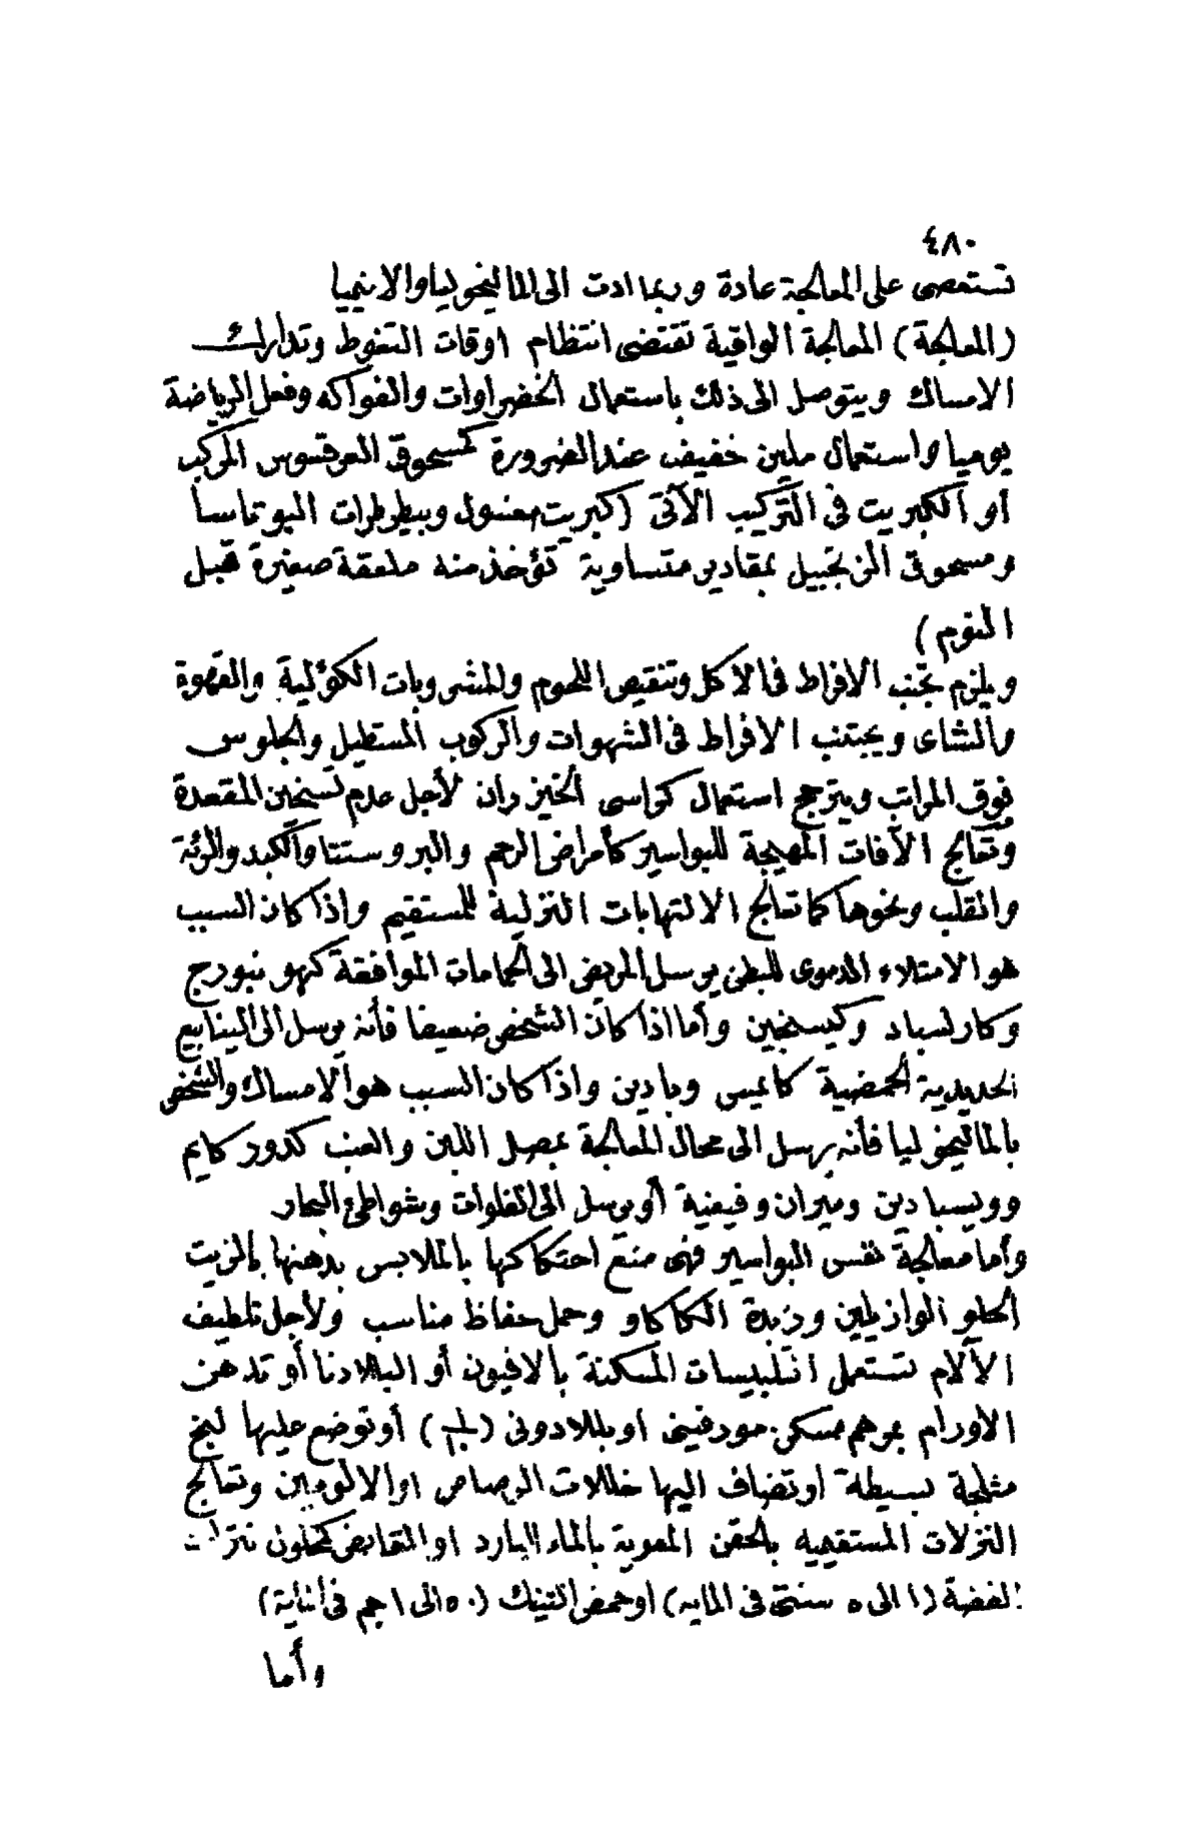 ٤٨٠
تستعصى على المعالجة عادة وربما ادت الى الماليخوليا والانيميا
(المعالجة) المعالجة الواقية تقتضى انتظام اوقات التغوط وتدارك
الامساك ويتوصل الى ذلك باستعمال الخضراوات والفواكه وفعل الرياضة
يوميا واستعمال ملين خفيف عند الضرورة كمسحوق العرقسوس المركب
او الكبريت فى التركيب الآتى (كبريت مغسول وبيطرطرات البوتاسا
ومسحوق الزنجبيل بمقادير متساوية تؤخذ منه ملعقة صغيرة قبل
النوم)
ويلزم تجنب الافراط فى الاكل وتنقيص اللحوم والمشروبات الكؤلية والقهوة
والشاى ويجتنب الافراط فى الشهوات والركوب المستطيل والجلوس
فوق المراتب ويترجح استعمال كراسى الخيزران لأجل عدم تسخين المقعدة
وتعالج الآفات المهيجة للبواسير كأمراض الرحم والبروستتا والكبد والرئة
والقلب ونحوها كما تعالج الالتهابات النزلية للمستقيم واذا كان السبب
هو الامتلاء الدموى للبطن يرسل المريض الى الحمامات الموافقة كهومبورج
وكارلسباد وكيسنجين وأما اذا كان الشخص ضعيفا فأنه يرسل الى الينابيع
الحديدية الحمضية كايمس وبادين واذا كان السبب هو الامساك والشخص
بالماليخوليا فأنه يرسل الى محال المعالجة بمصل اللبن والعنب كدوركايم
وويسبادين وميران وفيفية أو يرسل الى الفلوات وشواطئ البحار
وأما معالجة نفس البواسير فهى منع احتكاكها بالملابس بدهنها بالزيت
الحلو الوازيلين وزبدة الكاكاو وحمل حفاظ مناسب ولأجل تلطيف
الآلام تستعمل التلبيسات المسكنة بالافيون أو البلادنا أو تدهن
الاورام بمرهم مسكن مورفينى او بللادونى أو توضع عليها لبخ
مثلجة بسيطة او تضاف اليها خللات الرصاص او الالومين وتعالج
النزلات المستقيميه بالحقن المعوية بالماء البارد او القابض كمحلول نترات
الفضة (١ الى ٥ سنتى فى المايه) او حمض التنيك (٥٠ الى ١ جم فى المايه)
وأما